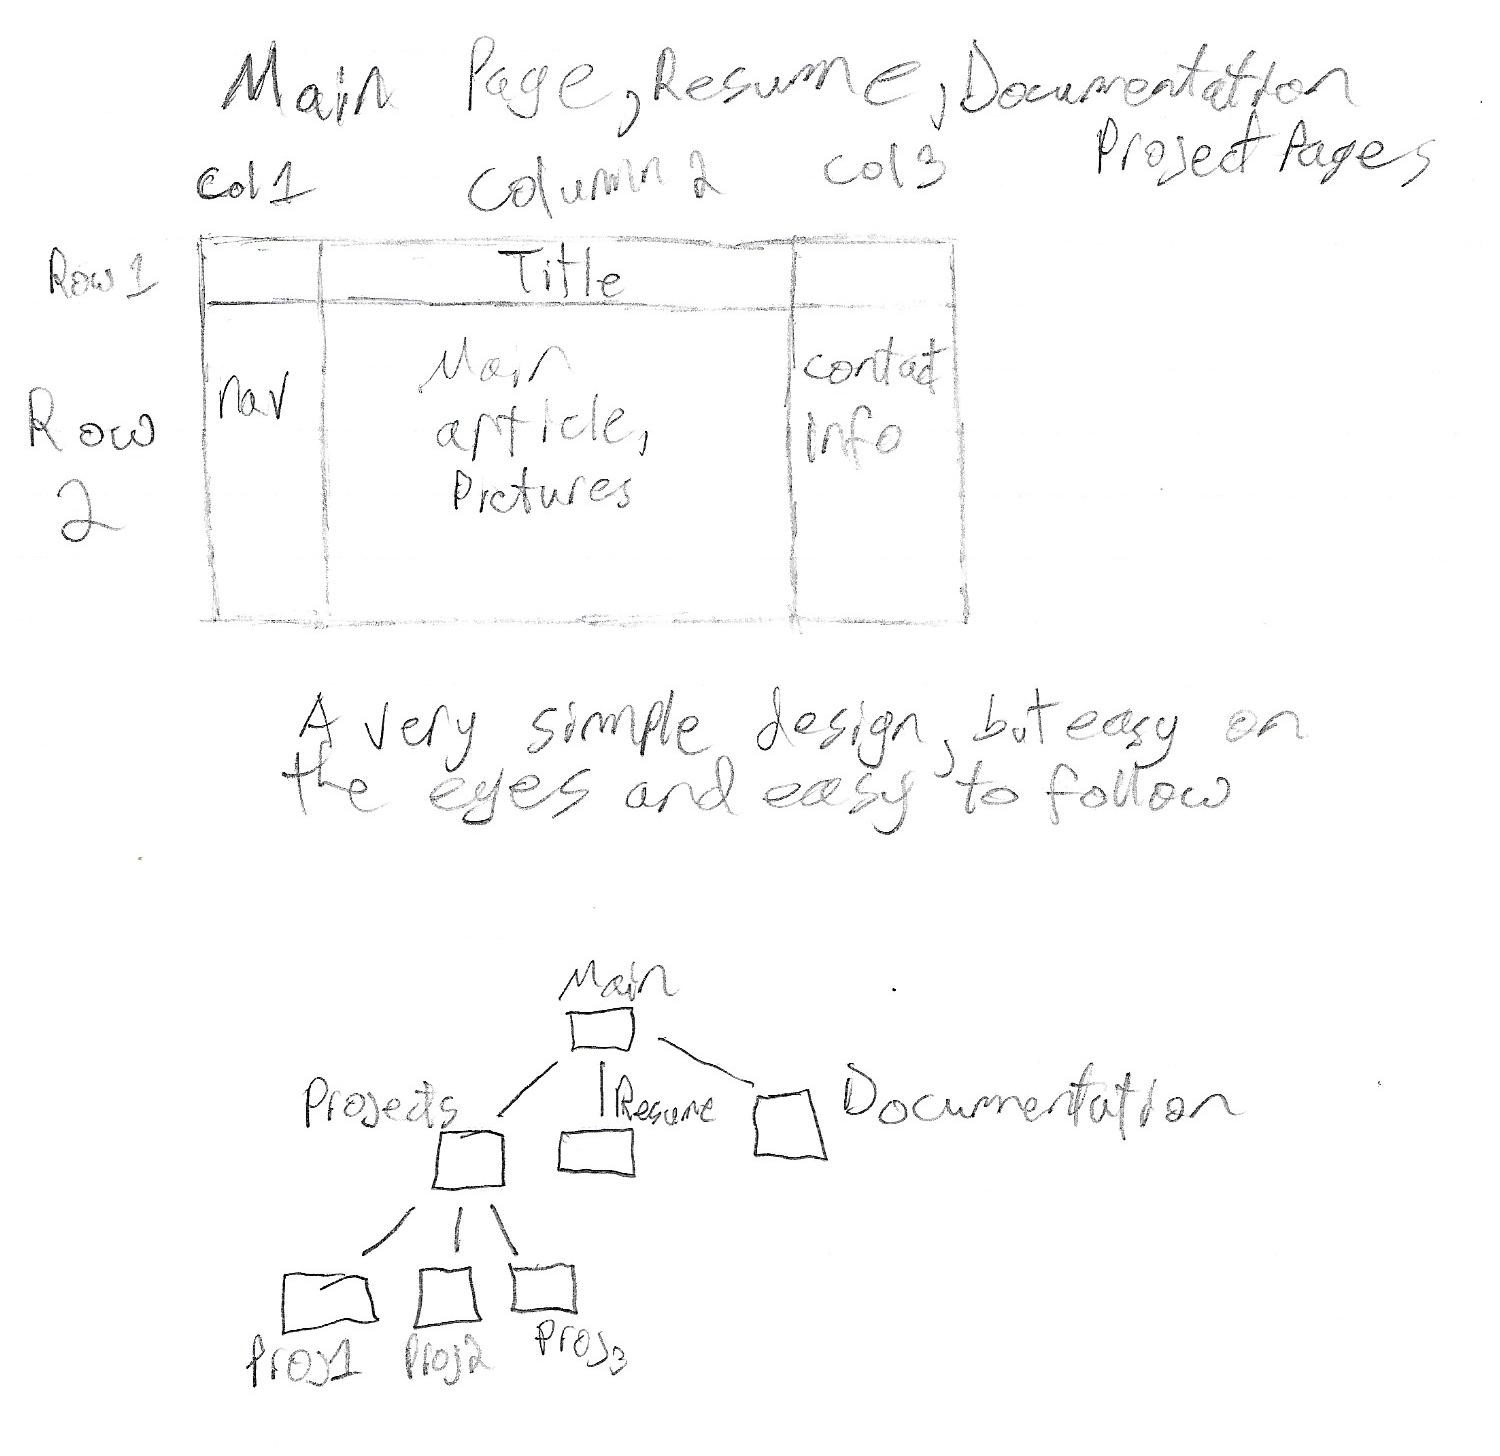 Main Page, Resume, Documentation
Project Pages
Col 1 Column 2 Col 3
Row 1 Title
nav Main article, Pictures contact info
Row 2
A very simple design, but easy on
the eyes and easy to follow
Main
Projects Resume Documentation
Proj1 Proj2 Proj3